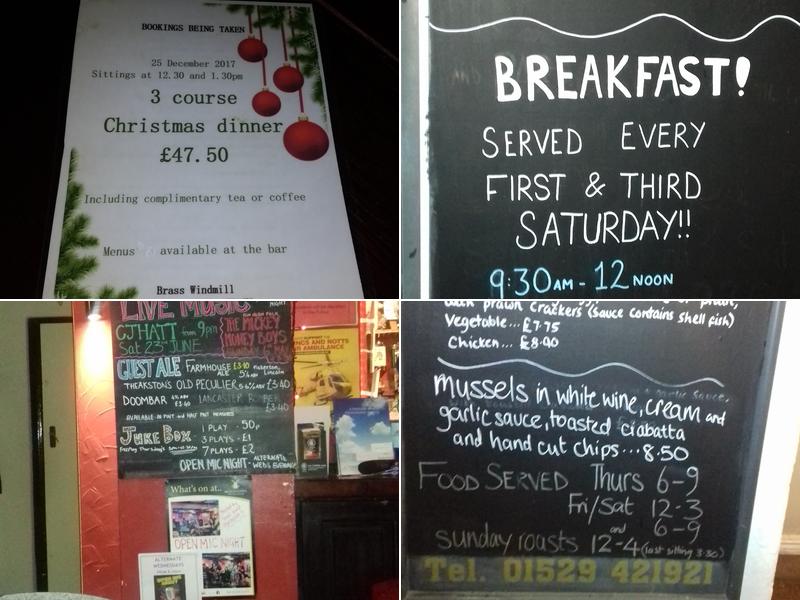 BOOKINGS BEING TAKEN
25 December 2017
Sittings at 12.30 and 1.30pm
3 course
Christmas dinner
£47.50
Including complimentary tea or coffee
Menus available at the bar
Brass Windmill
BREAKFAST!
SERVED EVERY
FIRST & THIRD
SATURDAY!!
9:30AM - 12 NOON
LIVE MUSIC
NIGHT
CJ HATT from 9pm
Sat 23rd JUNE
THE MICKEY
MONEY BOYS
GUEST ALE FARMHOUSE £3.40
ALE 5% ABV Lincoln
THEAKSTONS OLD PECULIER 5.6% ABV £3.40
DOOMBAR 4% ABV £3.40 LANCASTER
£3.40
AVAILABLE IN PINT and HALF PINT MEASURES
JUKE BOX 1 PLAY - 50p
3 PLAYS - £1
7 PLAYS - £2
OPEN MIC NIGHT - ALTERNATE
WED'S EVENINGS
NCS AND NOTTS
AIR AMBULANCE
What's on at...
OPEN MIC NIGHT
ALTERNATE
WEDNESDAYS
with prawn crackers (sauce contains shell fish)
Vegetable... £7.75
Chicken... £8.90
mussels in white wine, cream and
garlic sauce, toasted ciabatta
and hand cut chips...8.50
FOOD SERVED Thurs 6-9
Fri/Sat 12-3
and 6-9
Sunday roasts 12-4 (last sitting 3.30)
Tel. 01529 421921